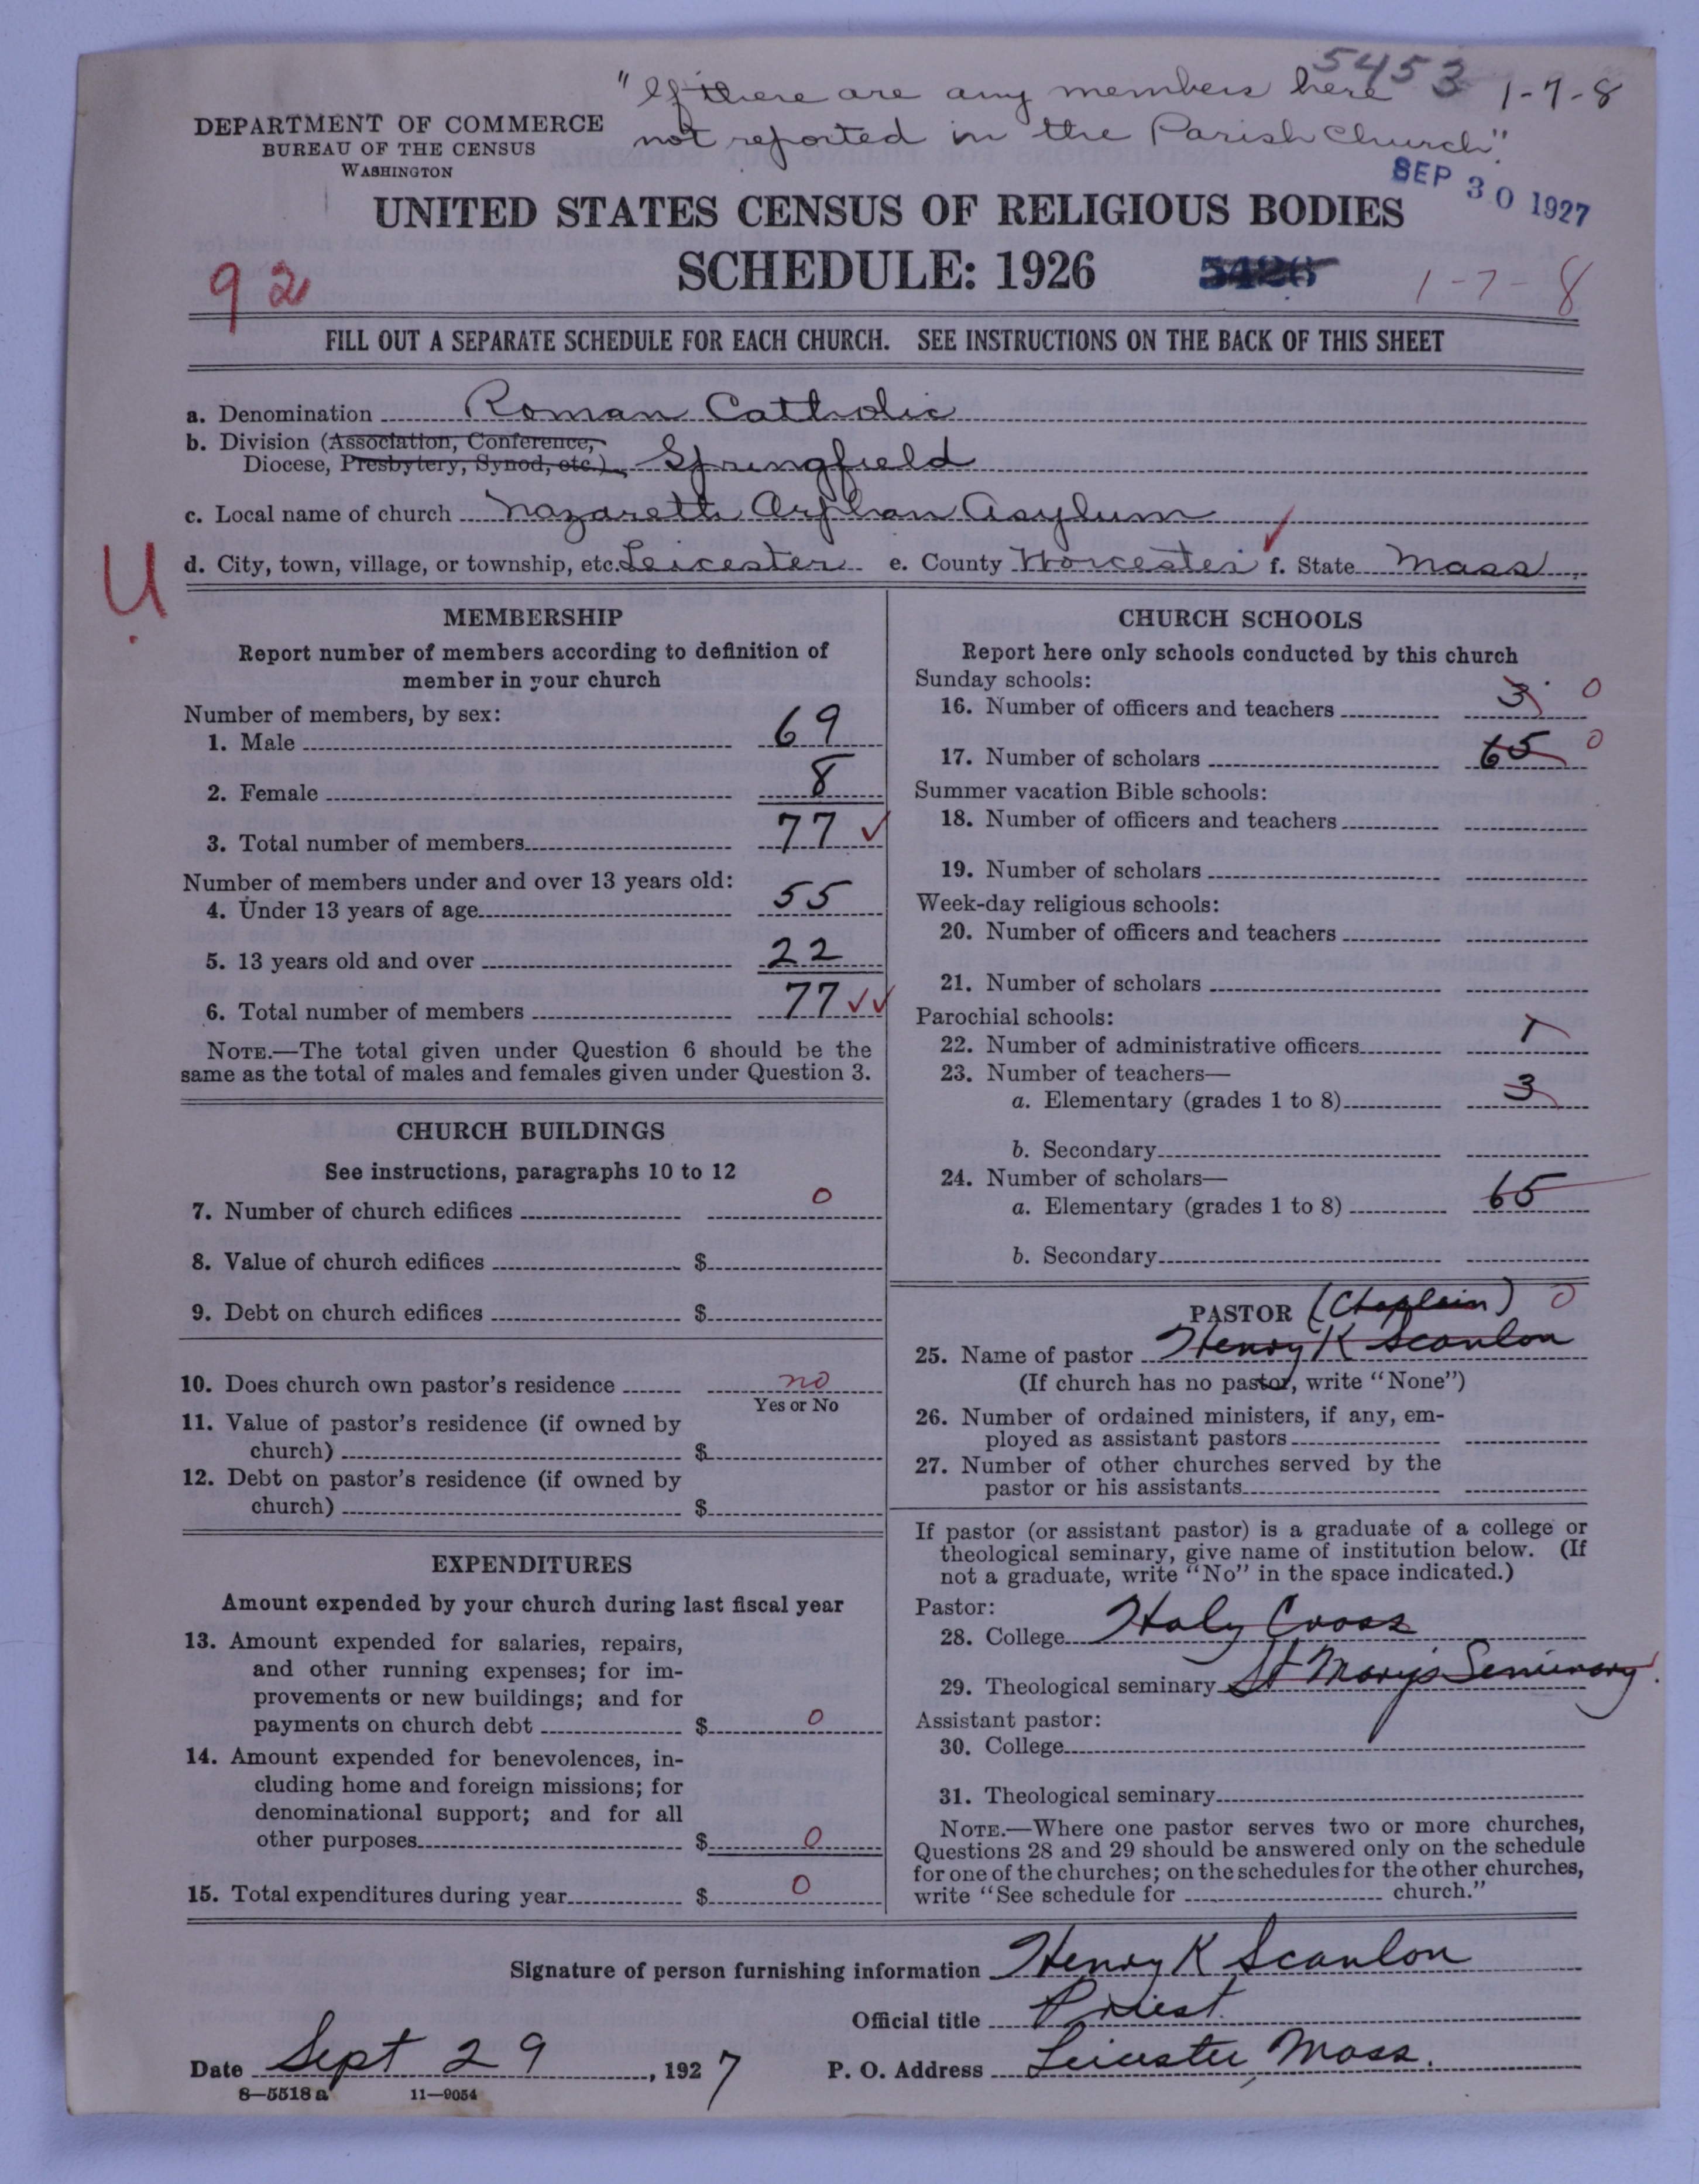 5453
"If there are any members here 1-7-8
not reported in the Parish Church".
DEPARTMENT OF COMMERCE
BUREAU OF THE CENSUS
WASHINGTON
SEP 30 1927
UNITED STATES CENSUS OF RELIGIOUS BODIES
SCHEDULE: 1926
1-7-8
92
FILL OUT A SEPARATE SCHEDULE FOR EACH CHURCH. SEE INSTRUCTIONS ON THE BACK OF THIS SHEET
a. Denomination Roman Catholic
b. Division (Association, Conference,
Diocese, Presbytery, Synod, etc.) Springfield
c. Local name of church Nazareth Orphan Asylum
U
d. City, town, village, or township, etc. Leicester e. County Worcester f. State Mass
MEMBERSHIP
Report number of members according to definition of
member in your church
Number of members, by sex:
1. Male 69
2. Female 8
3. Total number of members 77 ✓
Number of members under and over 13 years old:
4. Under 13 years of age 55
5. 13 years old and over 22
6. Total number of members 77 ✓✓
NOTE.—The total given under Question 6 should be the
same as the total of males and females given under Question 3.
CHURCH BUILDINGS
See instructions, paragraphs 10 to 12
7. Number of church edifices 0
8. Value of church edifices $
9. Debt on church edifices $
10. Does church own pastor's residence no
Yes or No
11. Value of pastor's residence (if owned by
church) $
12. Debt on pastor's residence (if owned by
church) $
EXPENDITURES
Amount expended by your church during last fiscal year
13. Amount expended for salaries, repairs,
and other running expenses; for im-
provements or new buildings; and for
payments on church debt $ 0
14. Amount expended for benevolences, in-
cluding home and foreign missions; for
denominational support; and for all
other purposes $ 0
15. Total expenditures during year $ 0
CHURCH SCHOOLS
Report here only schools conducted by this church
Sunday schools:
16. Number of officers and teachers 3 0
17. Number of scholars 65 0
Summer vacation Bible schools:
18. Number of officers and teachers
19. Number of scholars
Week-day religious schools:
20. Number of officers and teachers
21. Number of scholars
Parochial schools:
22. Number of administrative officers 1
23. Number of teachers—
a. Elementary (grades 1 to 8) 3
b. Secondary
24. Number of scholars—
a. Elementary (grades 1 to 8) 65
b. Secondary
PASTOR (Chaplain) 0
25. Name of pastor Henry K Scanlon
(If church has no pastor, write "None")
26. Number of ordained ministers, if any, em-
ployed as assistant pastors
27. Number of other churches served by the
pastor or his assistants
If pastor (or assistant pastor) is a graduate of a college or
theological seminary, give name of institution below. (If
not a graduate, write "No" in the space indicated.)
Pastor:
28. College Holy Cross
29. Theological seminary St Mary's Seminary
Assistant pastor:
30. College
31. Theological seminary
NOTE.—Where one pastor serves two or more churches,
Questions 28 and 29 should be answered only on the schedule
for one of the churches; on the schedules for the other churches,
write "See schedule for church."
Signature of person furnishing information Henry K Scanlon
Official title Priest
Date Sept 29, 1927 P. O. Address Leicester Mass.
8—5518 a 11—9054